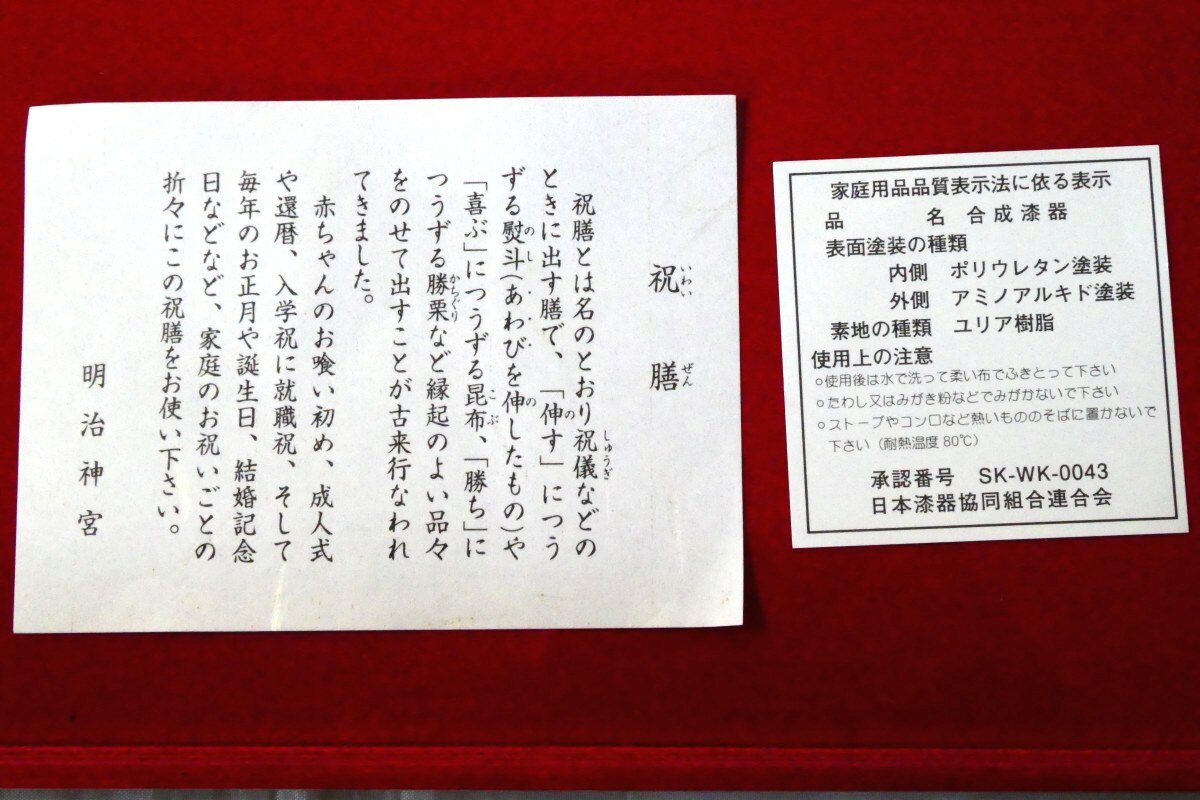 祝膳
祝膳とは名のとおり祝儀などの
ときに出す膳で、「伸す」につう
ずる熨斗(あわびを伸したもの)や
「喜ぶ」につうずる昆布、「勝ち」に
つうずる勝栗など縁起のよい品々
をのせて出すことが古来行なわれ
てきました。
赤ちゃんのお喰い初め、成人式
や還暦、入学祝に就職祝、そして
毎年のお正月や誕生日、結婚記念
日などなど、家庭のお祝いごとの
折々にこの祝膳をお使い下さい。
明治神宮
家庭用品品質表示法に依る表示
品 名 合成漆器
表面塗装の種類
内側 ポリウレタン塗装
外側 アミノアルキド塗装
素地の種類 ユリア樹脂
使用上の注意
○使用後は水で洗って柔い布でふきとって下さい
○たわし又はみがき粉などでみがかないで下さい
○ストーブやコンロなど熱いもののそばに置かないで
下さい(耐熱温度80℃)
承認番号 SK-WK-0043
日本漆器協同組合連合会